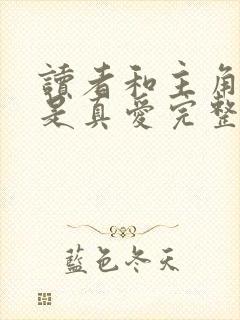 讀者和主角
是真愛完整
藍色冬天